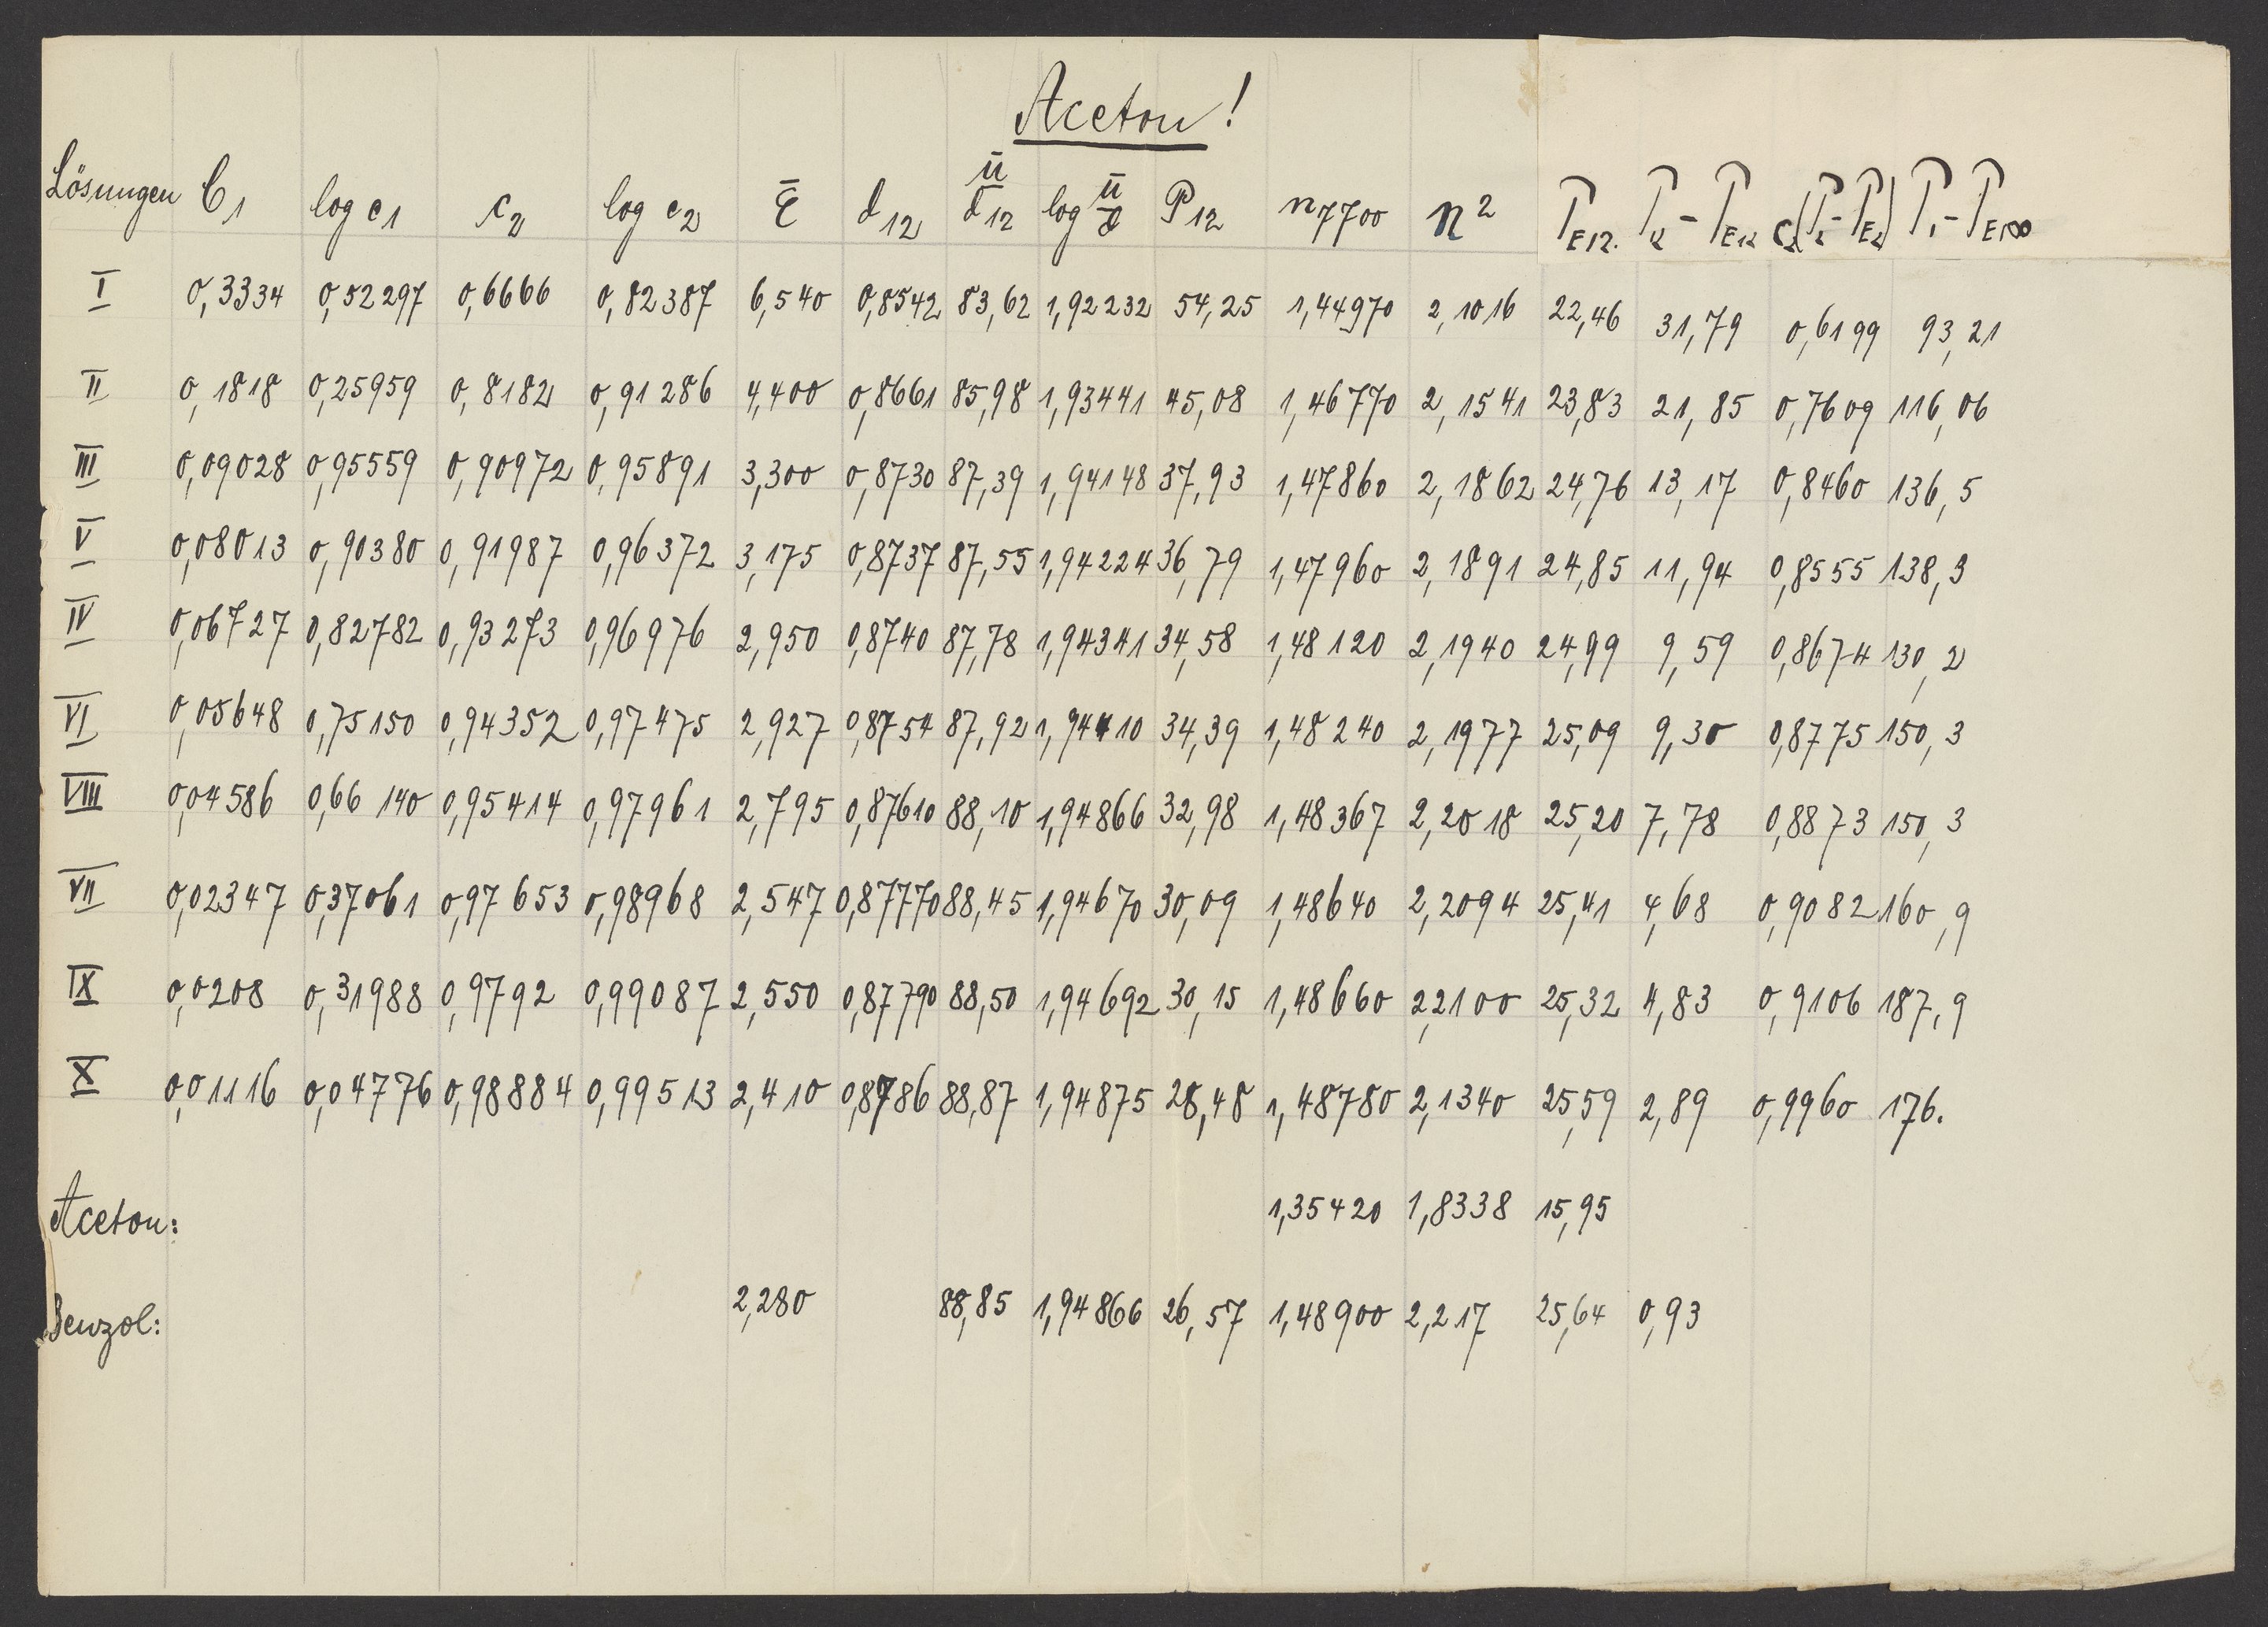 Aceton!
Lösungen C1 log c1 c2 log c2 ε̄ d12 M̄/d12 log M̄/d P12 n7700 n² PE12. P12-PE12 c2(P2-PE2) P1-PE1∞
I 0,3334 0,52297 0,6666 0,82387 6,540 0,8542 83,62 1,92232 54,25 1,44970 2,1016 22,46 31,79 0,6199 93,21
II 0,1818 0,25959 0,8182 0,91286 4,400 0,8661 85,98 1,93441 45,08 1,46770 2,1541 23,83 21,85 0,7609 116,06
III 0,09028 0,95559 0,90972 0,95891 3,300 0,8730 87,39 1,94148 37,93 1,47860 2,1862 24,76 13,17 0,8460 136,5
V 0,08013 0,90380 0,91987 0,96372 3,175 0,8737 87,55 1,94224 36,79 1,47960 2,1891 24,85 11,94 0,8555 138,3
IV 0,06727 0,82782 0,93273 0,96976 2,950 0,8740 87,78 1,94341 34,58 1,48120 2,1940 24,99 9,59 0,8674 130,2
VI 0,05648 0,75150 0,94352 0,97475 2,927 0,8754 87,92 1,94410 34,39 1,48240 2,1977 25,09 9,30 0,8775 150,3
VIII 0,04586 0,66140 0,95414 0,97961 2,795 0,87610 88,10 1,94866 32,98 1,48367 2,2018 25,20 7,78 0,8873 150,3
VII 0,02347 0,37061 0,97653 0,98968 2,547 0,87770 88,45 1,94670 30,09 1,48640 2,2094 25,41 4,68 0,9082 160,9
IX 0,0208 0,31988 0,9792 0,99087 2,550 0,87790 88,50 1,94692 30,15 1,48660 2,2100 25,32 4,83 0,9106 187,9
X 0,01116 0,04776 0,98884 0,99513 2,410 0,8786 88,87 1,94875 28,48 1,48780 2,1340 25,59 2,89 0,9960 176.
Aceton: 1,35420 1,8338 15,95
Benzol: 2,280 88,85 1,94866 26,57 1,48900 2,217 25,64 0,93